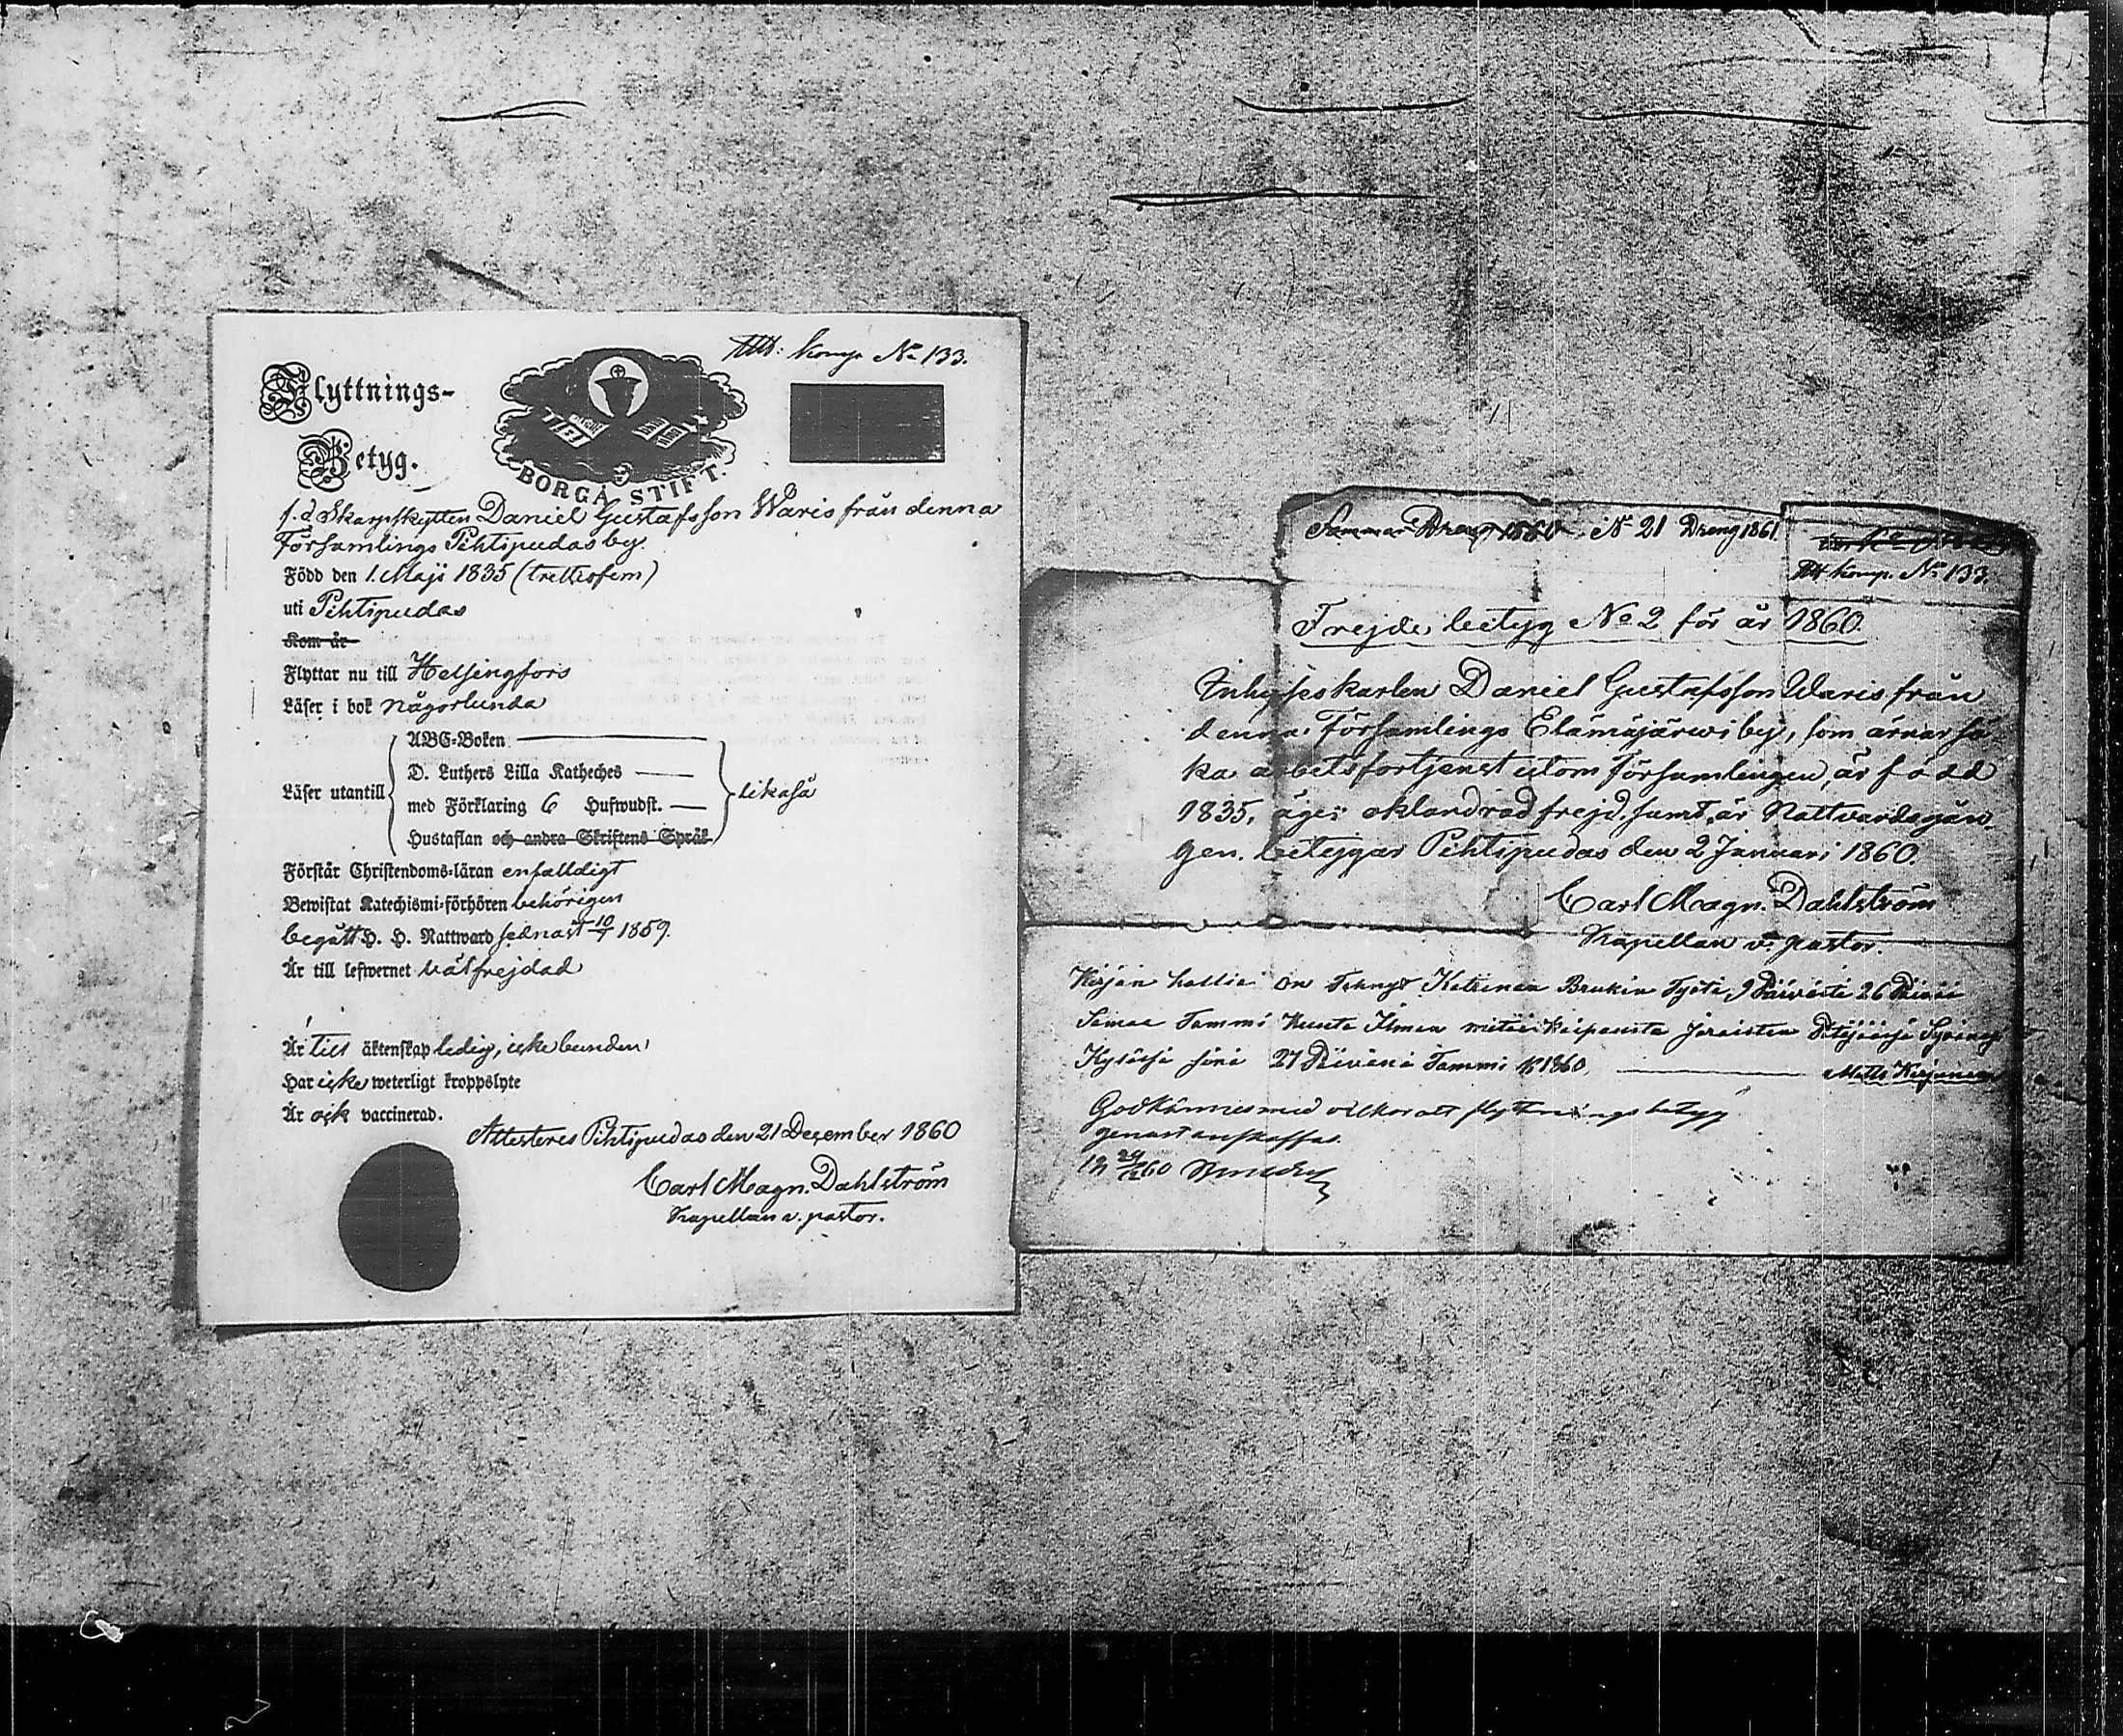 Att: komp No 133.
Flyttnings-
Betyg.
BORGÅ STIFT.
f. d Skarpskytten Daniel Gustafsson Waris från denna
Församlings Pihtipudas by.
Född den 1. Maji 1835 (trettiofem)
uti Pihtipudas
Kom år
Flyttar nu till Helsingfors
Läser i bok någorlunda
Läser utantill
ABC-Boken
D. Luthers Lilla Katheches
med Förklaring 6 Hufwudst.
Hustaflan och andra Skriftens Språk
likaså
Förstår Christendoms-läran enfalldigt
Bewistat Katechismi-förhören behörigen
begått H. H. Nattward sednast 10/7 1859.
Är till lefwernet välfrejdad
Är till äktenskap ledig, icke bunden
Har icke weterligt kroppslyte
Är ock vaccinerad.
Attesteras Pihtipudas den 21 December 1860
Carl Magn. Dahlström
Kapellan v. pastor.
Dreng 1860 No 21 Dreng 1861
Att komp. No 133.
Frejde betyg No 2 för år 1860.
Inhyseskarlen Daniel Gustafsson Waris från
denna Församlings Elämäjärwi by, som ärnar sö
ka arbetsfortjenst utom Församlingen, är född
1835, äger oklandrad frejd, samt är Nattvardsgån
gen. betygar Pihtipudas den 2 Januari 1860.
Carl Magn. Dahlström
Kapellan v. pastor.
Kirjan haltia on Tehnyt Brukin Työtä 9 Päivästä 26
Samaa Tammi Kuuta Ilman
Kylässä 27 Päivänä Tammi k 1860. Matts
Godkännes med vilkor att flyttningsbetyg
genast anskaffas.